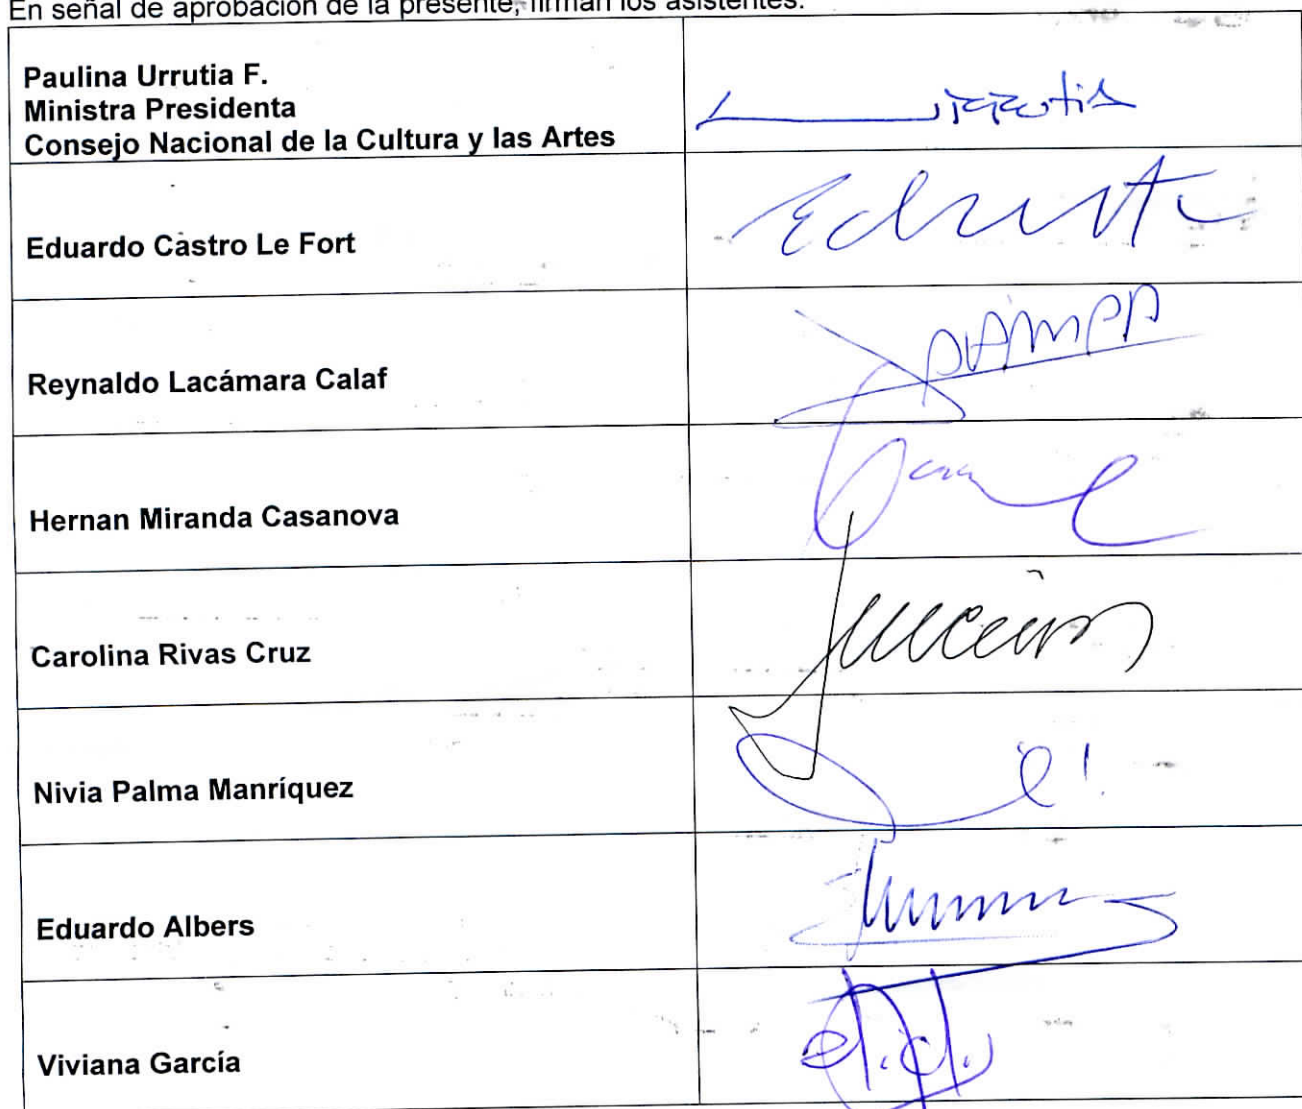 En señal de aprobación de la presente, firman los asistentes:
Paulina Urrutia F.
Ministra Presidenta
Consejo Nacional de la Cultura y las Artes
Eduardo Castro Le Fort
Reynaldo Lacámara Calaf
Hernan Miranda Casanova
Carolina Rivas Cruz
Nivia Palma Manríquez
Eduardo Albers
Viviana García